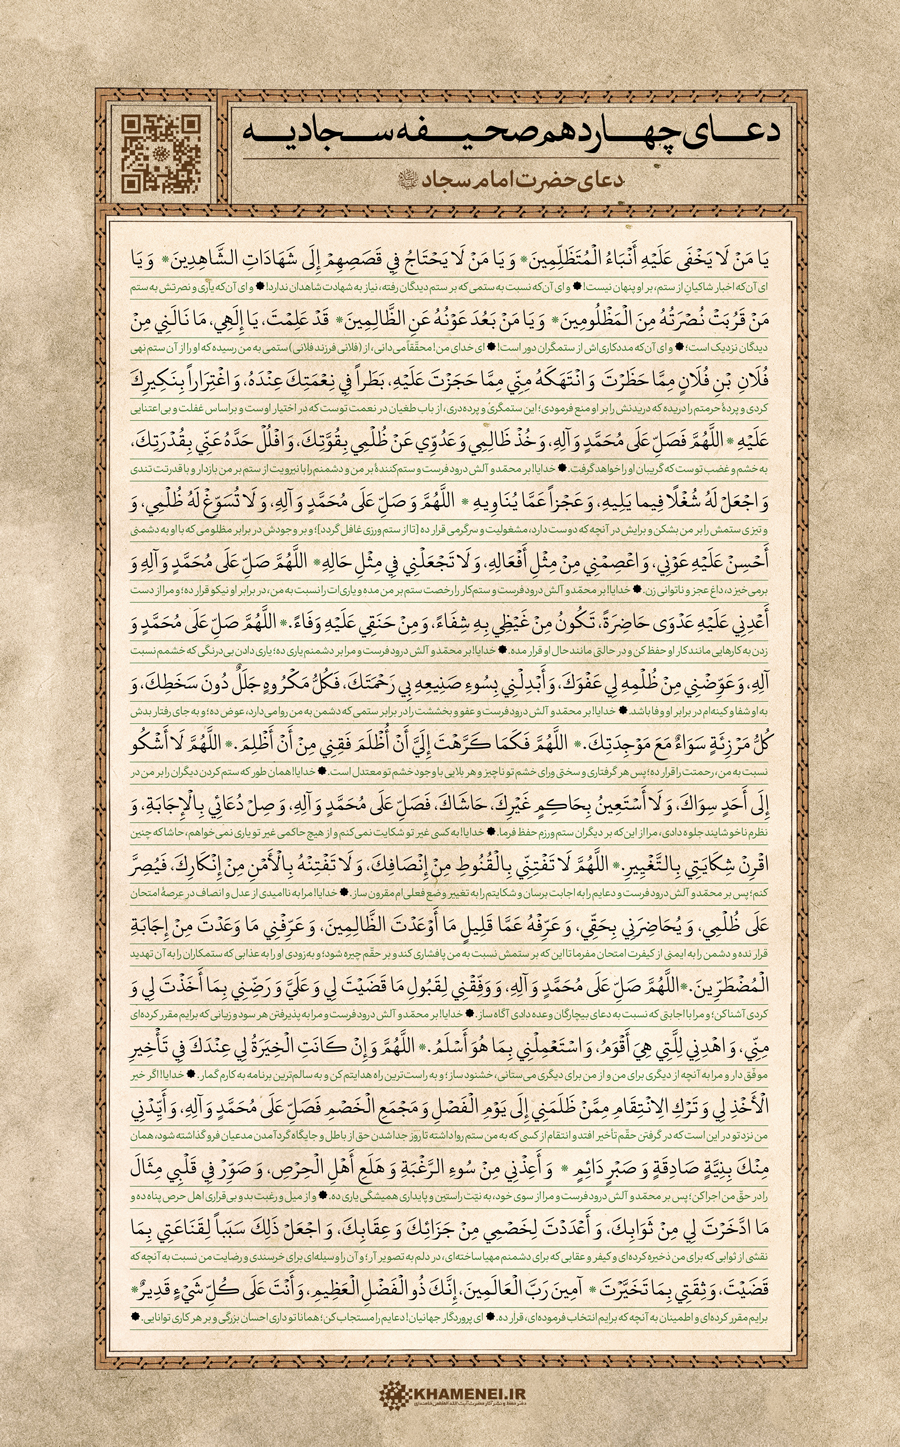 دعای چهاردهم صحیفه سجادیه
دعای حضرت امام سجاد
يَا مَنْ لَا يَخْفَى عَلَيْهِ أَنْبَاءُ الْمُتَظَلِّمِينَ* وَ يَا مَنْ لَا يَحْتَاجُ فِي قَصَصِهِمْ إِلَى شَهَادَاتِ الشَّاهِدِينَ* وَ يَا
ای آن‌که اخبار شاکیانِ از ستم، بر او پنهان نیست! و ای آن‌که نسبت به ستمی که بر ستم دیدگان رفته، نیاز به شهادت شاهدان ندارد! و ای آن‌که یاری و نصرتش به ستم
مَنْ قَرُبَتْ نُصْرَتُهُ مِنَ الْمَظْلُومِينَ* وَ يَا مَنْ بَعُدَ عَوْنُهُ عَنِ الظَّالِمِينَ* قَدْ عَلِمْتَ، يَا إِلَهِي، مَا نَالَنِي مِنْ
دیدگان نزدیک است؛ و ای آن‌که مددکاری‌اش از ستمگران دور است! ای خدای من! محققاً می‌دانی، از (فلانی فرزند فلانی) ستمی به من رسیده که او را از آن ستم نهی
فُلَانِ بْنِ فُلَانٍ مِمَّا حَظَرْتَ وَ انْتَهَكَهُ مِنِّي مِمَّا حَجَزْتَ عَلَيْهِ، بَطَراً فِي نِعْمَتِكَ عِنْدَهُ، وَ اغْتِرَاراً بِنَكِيرِكَ
کردی و پردهٔ حرمتم را دریده که دریدنش را بر او منع فرمودی؛ این ستمگری و پرده‌دری، از باب طغیان در نعمت توست که در اختیار اوست و براساس غفلت و بی اعتنایی
عَلَيْهِ* اللَّهُمَّ فَصَلِّ عَلَى مُحَمَّدٍ وَ آلِهِ، وَ خُذْ ظَالِمِي وَ عَدُوِّي عَنْ ظُلْمِي بِقُوَّتِكَ، وَ افْلُلْ حَدَّهُ عَنِّي بِقُدْرَتِكَ،
به خشم و غضب توست که گریبان او را خواهد گرفت. خدایا! بر محمّد و آلش درود فرست و ستم‌کنندهٔ بر من و دشمنم را با نیرویت از ستم بر من بازدار و با قدرتت تندی
وَ اجْعَلْ لَهُ شُغْلًا فِيما يَلِيهِ، وَ عَجْزاً عَمَّا يُنَاوِيهِ* اللَّهُمَّ وَ صَلِّ عَلَى مُحَمَّدٍ وَ آلِهِ، وَ لَا تُسَوِّغْ لَهُ ظُلْمِي، وَ
و تیزی ستمش را بر من بشکن و برایش در آنچه که دوست دارد، مشغولیت و سرگرمی قرار ده [تا از ستم ورزی غافل گردد]؛ و بر وجودش در برابر مظلومی که با او به دشمنی
أَحْسِنْ عَلَيْهِ عَوْنِي، وَ اعْصِمْنِي مِنْ مِثْلِ أَفْعَالِهِ، وَ لَا تَجْعَلْنِي فِي مِثْلِ حَالِهِ* اللَّهُمَّ صَلِّ عَلَى مُحَمَّدٍ وَ آلِهِ وَ
برمی‌خیزد، داغ عجز و ناتوانی زن. خدایا! بر محمّد و آلش درود فرست و ستم‌کار را رخصت ستم بر من مده و یاری‌ات را نسبت به من، در برابر او نیکو قرار ده؛ و مرا از دست
أَعْدِنِي عَلَيْهِ عَدْوَى حَاضِرَةً، تَكُونُ مِنْ غَيْظِي بِهِ شِفَاءً، وَ مِنْ حَنَقِي عَلَيْهِ وَفَاءً.* اللَّهُمَّ صَلِّ عَلَى مُحَمَّدٍ وَ
زدن به کارهایی مانند کار او حفظ کن و در حالتی مانند حال او قرار مده. خدایا! بر محمّد و آلش درود فرست و مرا بر دشمنم یاری ده؛ یاری دادن بی‌درنگی که خشمم نسبت
آلِهِ، وَ عَوِّضْنِي مِنْ ظُلْمِهِ لِي عَفْوَكَ، وَ أَبْدِلْنِي بِسُوءِ صَنِيعِهِ بِي رَحْمَتَكَ، فَكُلُّ مَكْرُوهٍ جَلَلٌ دُونَ سَخَطِكَ، وَ
به او شفا و کینه‌ام در برابر او وفا باشد. خدایا! بر محمّد و آلش درود فرست و عفو و بخششت را در برابر ستمی که دشمن به من روا می‌دارد، عوض ده؛ و به جای رفتار بدش
كُلُّ مَرْزِئَةٍ سَوَاءٌ مَعَ مَوْجِدَتِكَ.* اللَّهُمَّ فَكَمَا كَرَّهْتَ إِلَيَّ أَنْ أُظْلَمَ فَقِنِي مِنْ أَنْ أَظْلِمَ.* اللَّهُمَّ لَا أَشْكُو
نسبت به من، رحمتت را قرار ده؛ پس هر گرفتاری و سختی ورای خشم تو ناچیز و هر بلایی با وجود خشم تو معتدل است. خدایا! همان طور که ستم کردن دیگران را بر من در
إِلَى أَحَدٍ سِوَاكَ، وَ لَا أَسْتَعِينُ بِحَاكِمٍ غَيْرِكَ، حَاشَاكَ، فَصَلِّ عَلَى مُحَمَّدٍ وَ آلِهِ، وَ صِلْ دُعَائِي بِالْإِجَابَةِ، وَ
نظرم ناخوشایند جلوه دادی، مرا از این‌که بر دیگران ستم ورزم حفظ فرما. خدایا! به کسی غیر تو شکایت نمی‌کنم و از هیچ حاکمی غیر تو یاری نمی‌خواهم، حاشا که چنین
اقْرِنْ شِكَايَتِي بِالتَّغْيِيرِ.* اللَّهُمَّ لَا تَفْتِنِّي بِالْقُنُوطِ مِنْ إِنْصَافِكَ، وَ لَا تَفْتِنْهُ بِالْأَمْنِ مِنْ إِنْكَارِكَ، فَيُصِرَّ
کنم؛ پس بر محمّد و آلش درود فرست و دعایم را به اجابت برسان و شکایتم را به تغییر وضع فعلی‌ام مقرون ساز. خدایا! مرا به ناامیدی از عدل و انصاف در عرصهٔ امتحان
عَلَى ظُلْمِي، وَ يُحَاضِرَنِي بِحَقِّي، وَ عَرِّفْهُ عَمَّا قَلِيلٍ مَا أَوْعَدْتَ الظَّالِمِينَ، وَ عَرِّفْنِي مَا وَعَدْتَ مِنْ إِجَابَةِ
قرار نده و دشمن را به ایمنی از کیفرت امتحان مفرما تا این که بر ستمش نسبت به من پافشاری کند و بر حقّم چیره شود؛ و به‌زودی او را به عذابی که ستمکاران را به آن تهدید
الْمُضْطَرِّينَ.* اللَّهُمَّ صَلِّ عَلَى مُحَمَّدٍ وَ آلِهِ، وَ وَفِّقْنِي لِقَبُولِ مَا قَضَيْتَ لِي وَ عَلَيَّ وَ رَضِّنِي بِمَا أَخَذْتَ لِي وَ
کردی آشنا کن؛ و مرا با اجابتی که نسبت به دعای بیچارگان وعده دادی آگاه ساز. خدایا! بر محمّد و آلش درود فرست و مرا به پذیرفتن هر سود و زیانی که برایم مقرر کرده‌ای
مِنِّي، وَ اهْدِنِي لِلَّتِي هِيَ أَقْوَمُ، وَ اسْتَعْمِلْنِي بِمَا هُوَ أَسْلَمُ.* اللَّهُمَّ وَ إِنْ كَانَتِ الْخِيَرَةُ لِي عِنْدَكَ فِي تَأْخِيرِ
موفّق دار و مرا به آنچه از دیگری برای من و از من برای دیگری می‌ستانی، خشنود ساز؛ و به راست‌ترین راه هدایتم کن و به سالم‌ترین برنامه به کارم گمار. خدایا! اگر خیر
الْأَخْذِ لِي وَ تَرْكِ الِانْتِقَامِ مِمَّنْ ظَلَمَنِي إِلَى يَوْمِ الْفَصْلِ وَ مَجْمَعِ الْخَصْمِ فَصَلِّ عَلَى مُحَمَّدٍ وَ آلِهِ، وَ أَيِّدْنِي
من نزد تو در این است که در گرفتن حقّم تأخیر افتد و انتقام از کسی که به من ستم روا داشته تا روز جدا شدن حق از باطل و جایگاه گردآمدن مدعیان فرو گذاشته شود، همان
مِنْكَ بِنِيَّةٍ صَادِقَةٍ وَ صَبْرٍ دَائِمٍ* وَ أَعِذْنِي مِنْ سُوءِ الرَّغْبَةِ وَ هَلَعِ أَهْلِ الْحِرْصِ، وَ صَوِّرْ فِي قَلْبِي مِثَالَ
را در حقّ من اجرا کن؛ پس بر محمّد و آلش درود فرست و مرا از سوی خود، به نیّت راستین و پایداری همیشگی یاری ده. و از میل و رغبت بد و بی‌قراری اهل حرص پناه ده و
مَا ادَّخَرْتَ لِي مِنْ ثَوَابِكَ، وَ أَعْدَدْتَ لِخَصْمِي مِنْ جَزَائِكَ وَ عِقَابِكَ، وَ اجْعَلْ ذَلِكَ سَبَباً لِقَنَاعَتِي بِمَا
نقشی از ثوابی که برای من ذخیره کرده‌ای و کیفر و عقابی که برای دشمنم مهیا ساخته‌ای، در دلم به تصویر آر؛ و آن را وسیله‌ای برای خرسندی و رضایت من نسبت به آنچه که
قَضَيْتَ، وَ ثِقَتِي بِمَا تَخَيَّرْتَ* آمِينَ رَبَّ الْعَالَمِينَ، إِنَّكَ ذُو الْفَضْلِ الْعَظِيمِ، وَ أَنْتَ عَلَى كُلِّ شَيْءٍ قَدِيرٌ*
برایم مقرر کرده‌ای و اطمینان به آنچه که برایم انتخاب فرموده‌ای، قرار ده. ای پروردگار جهانیان! دعایم را مستجاب کن؛ همانا تو دارای احسان بزرگی و بر هر کاری توانایی.
KHAMENEI.IR